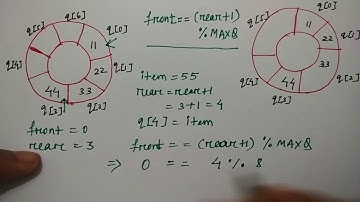 front == (rear+1)
% MAXQ
q[5]
q[6]
q[0]
11
q[4]
22
q[1]
44
33
q[3]
q[2]
item = 55
rear = rear+1
= 3+1 = 4
q[4] = item
q[0]
11
22
q[4]
33
44
q[3]
q[2]
front = 0
rear = 3
front == (rear+1) % MAXQ
⇒ 0 == 4 % 8